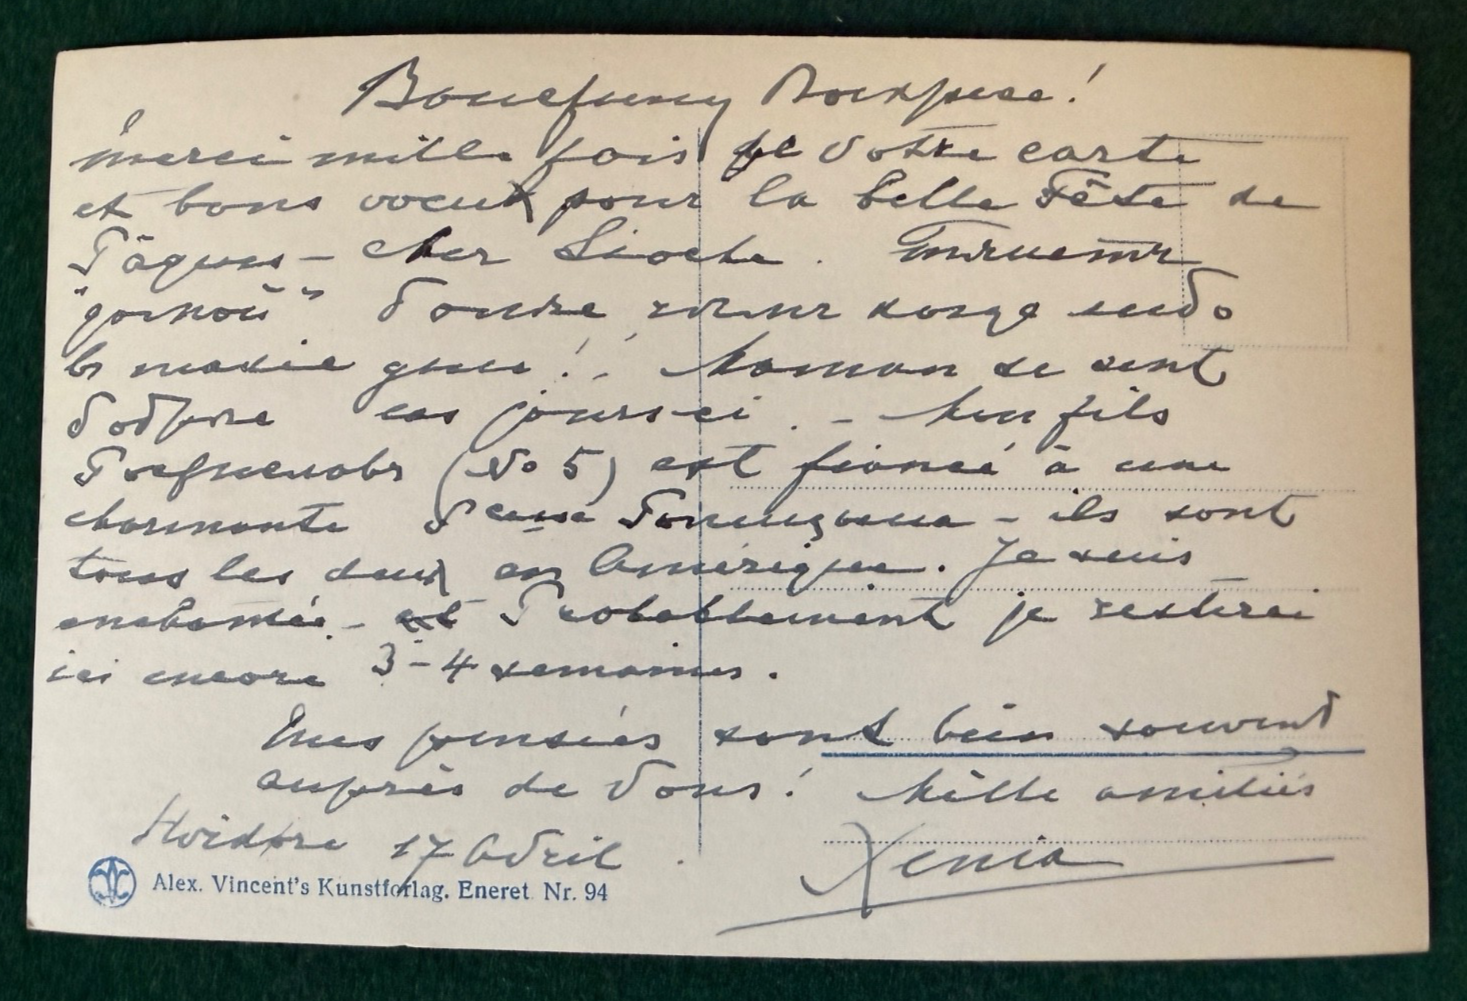 Воистину Воскресе!
Merci mille fois pr Votre carte
et bons voeux pour la belle Fête de
Pâques – cher Lioche.
"
le madie
! Maman se sent
бодрѣе ces jours-ci. – Mon fils
Ростиславъ (No 5) est fiancé à une
charmante Pcesse Голицына – ils sont
tous les deux en Amérique. Je suis
enchantée – et Probablement je resterai
ici encore 3–4 semaines.
Mes pensées sont bien souvent
auprès de Vous! Mille amitiés
Hvidøre 17 Avril. Xenia
Alex. Vincent's Kunstforlag. Eneret. Nr. 94